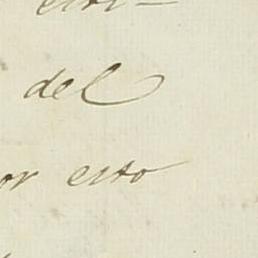 del
or esto